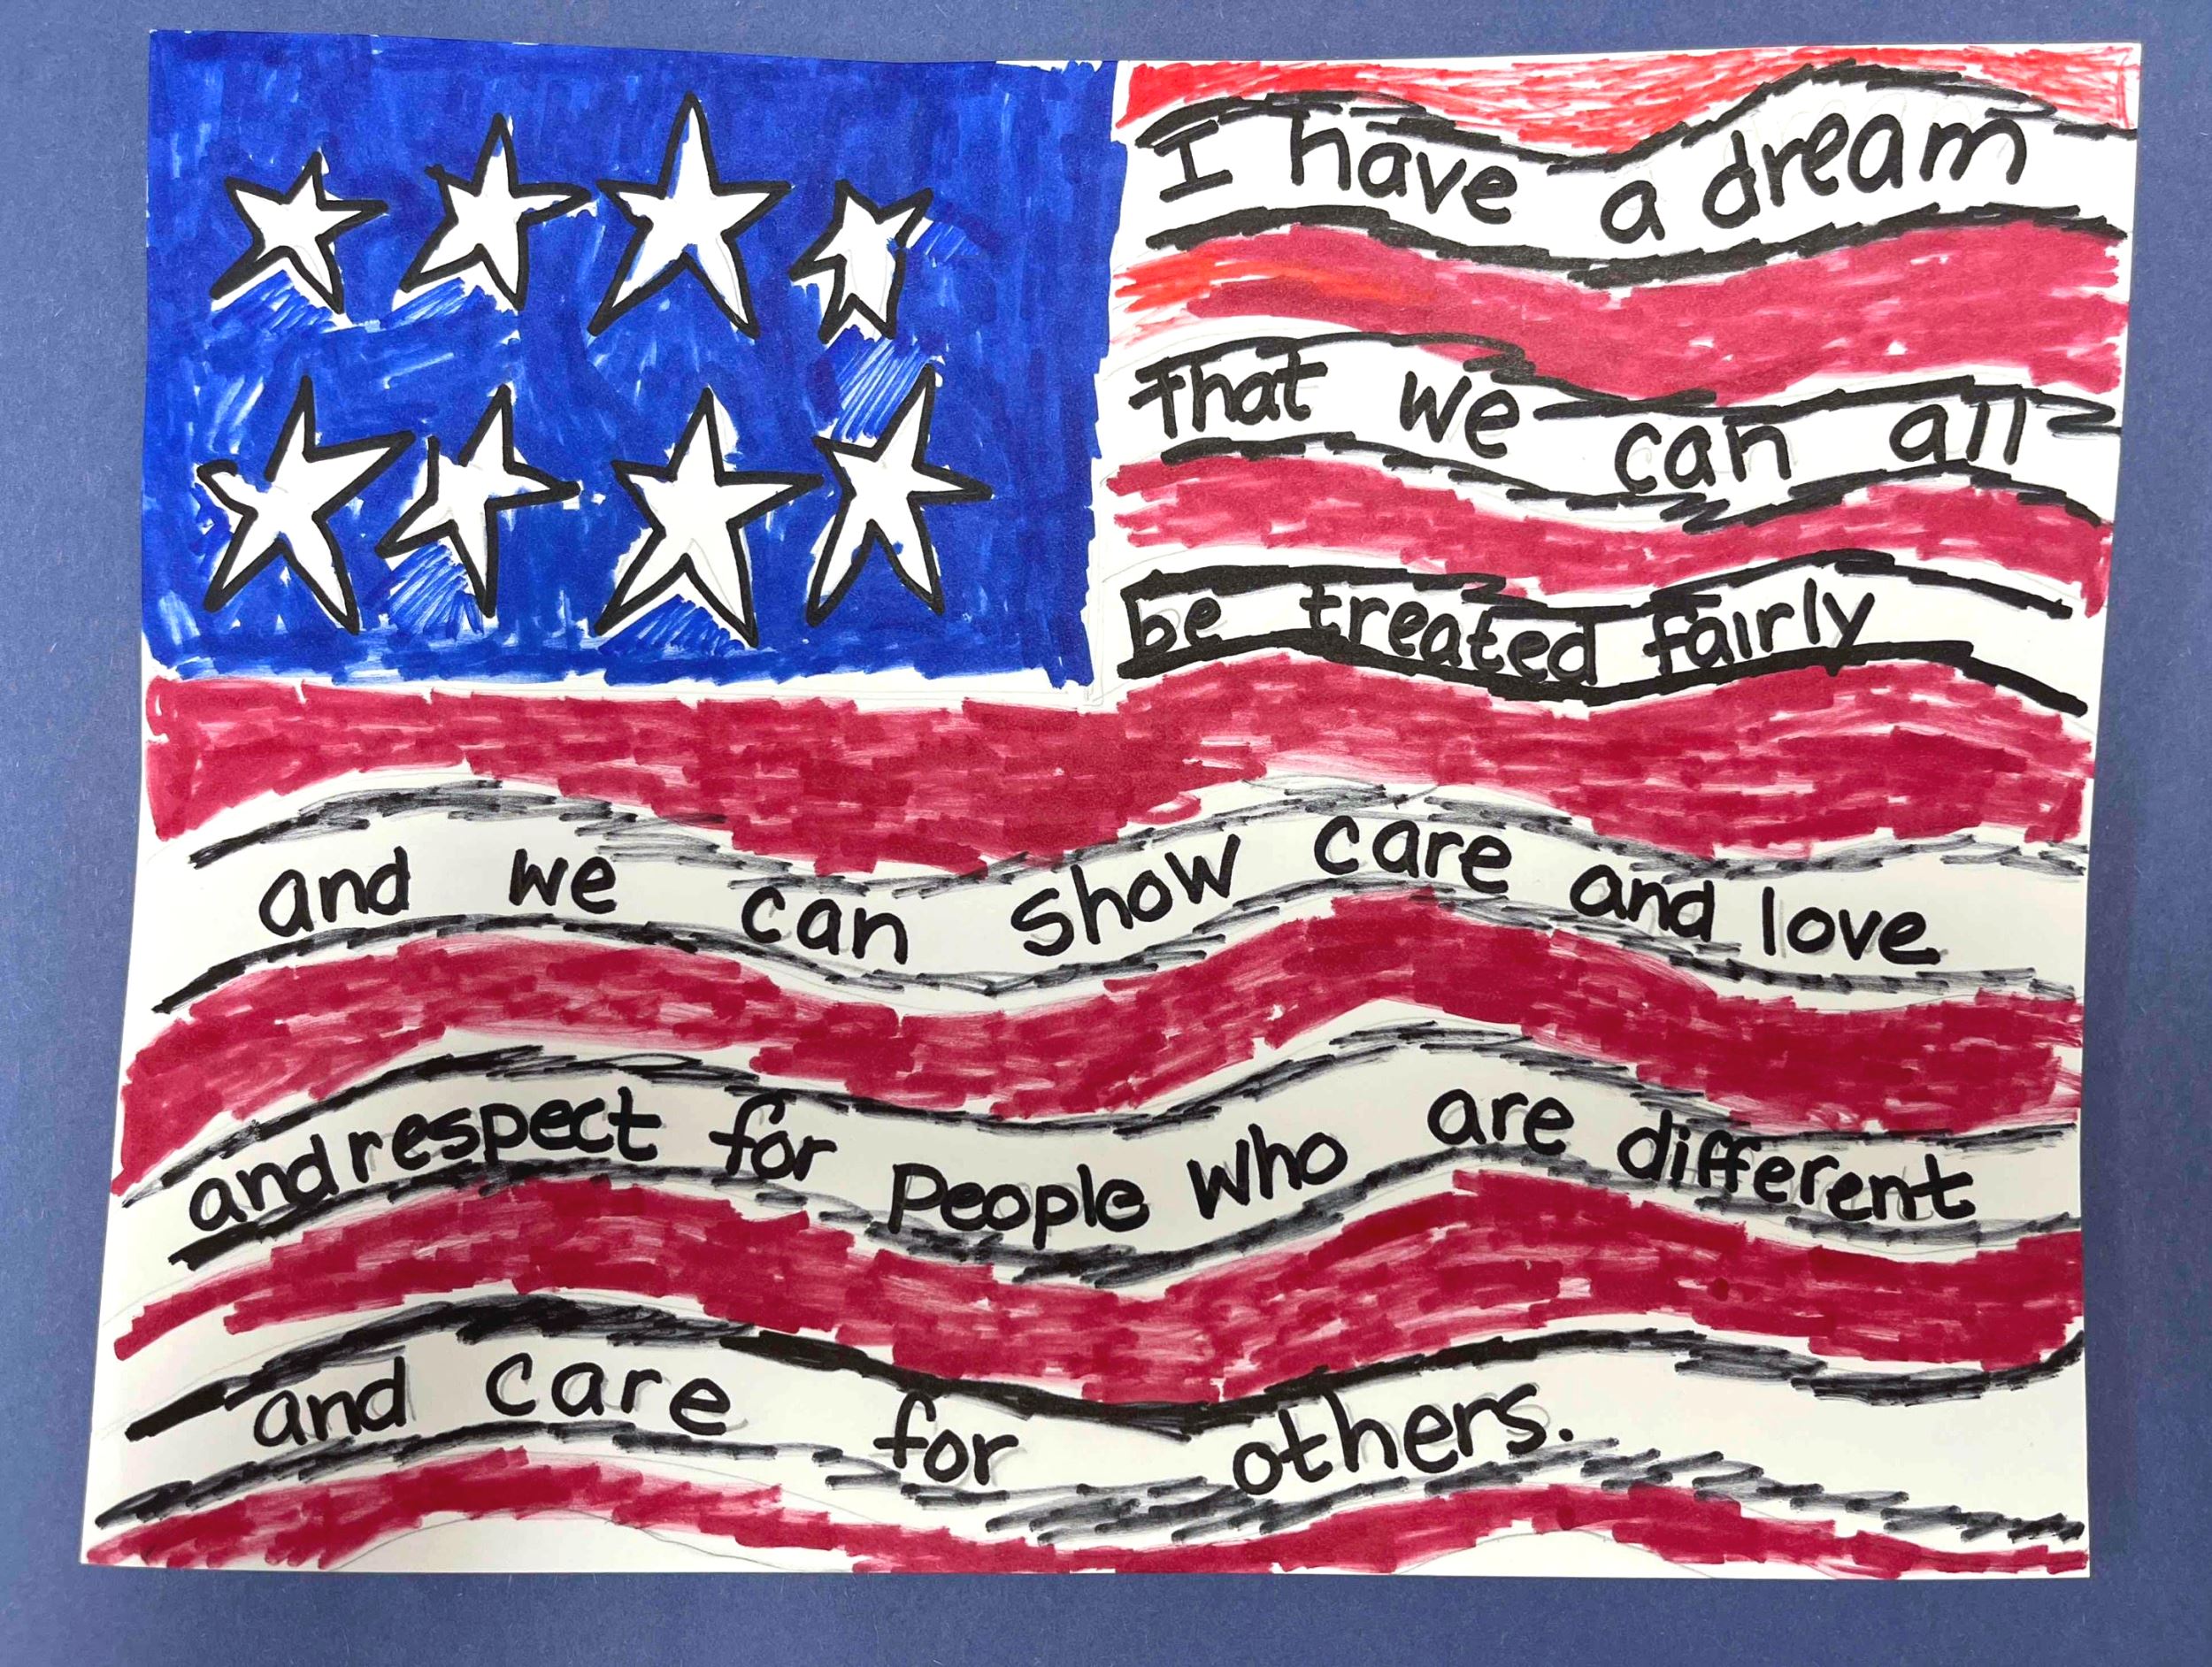 I have a dream
That we can all
be treated fairly
and we can show care and love
and respect for People Who are different
and care for others.